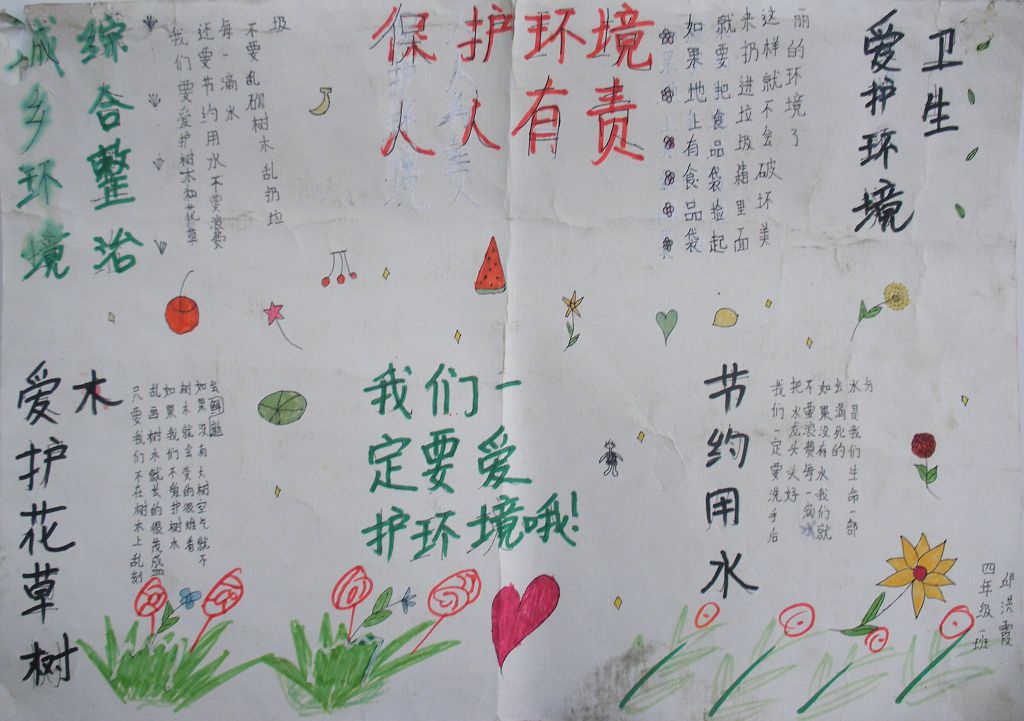 城乡环境
综合整治
我们要爱护树木和花草
还要节约用水不要浪费
每一滴水
不要乱砍树木乱扔垃
圾
保护环境
人人有责
如果地上有食品袋
就要把食品袋捡起
来扔进垃圾箱里面
这样就不会破坏美
丽的环境了
爱护环境
卫生
爱护花草树
木
只要我们不在树木上乱刻
乱画树木就长的很茂盛
如果我们不爱护树木
树木就会变的很难看
如果没有大树空气就不
会鲜
我们一
定要爱
护环境哦!
节约用水
我们一定要洗手后
把水龙头好
不要浪费每一滴水
如果没有水我们就
会渴死的
水是我们生命一部
分
四年级一班
邱洪霞